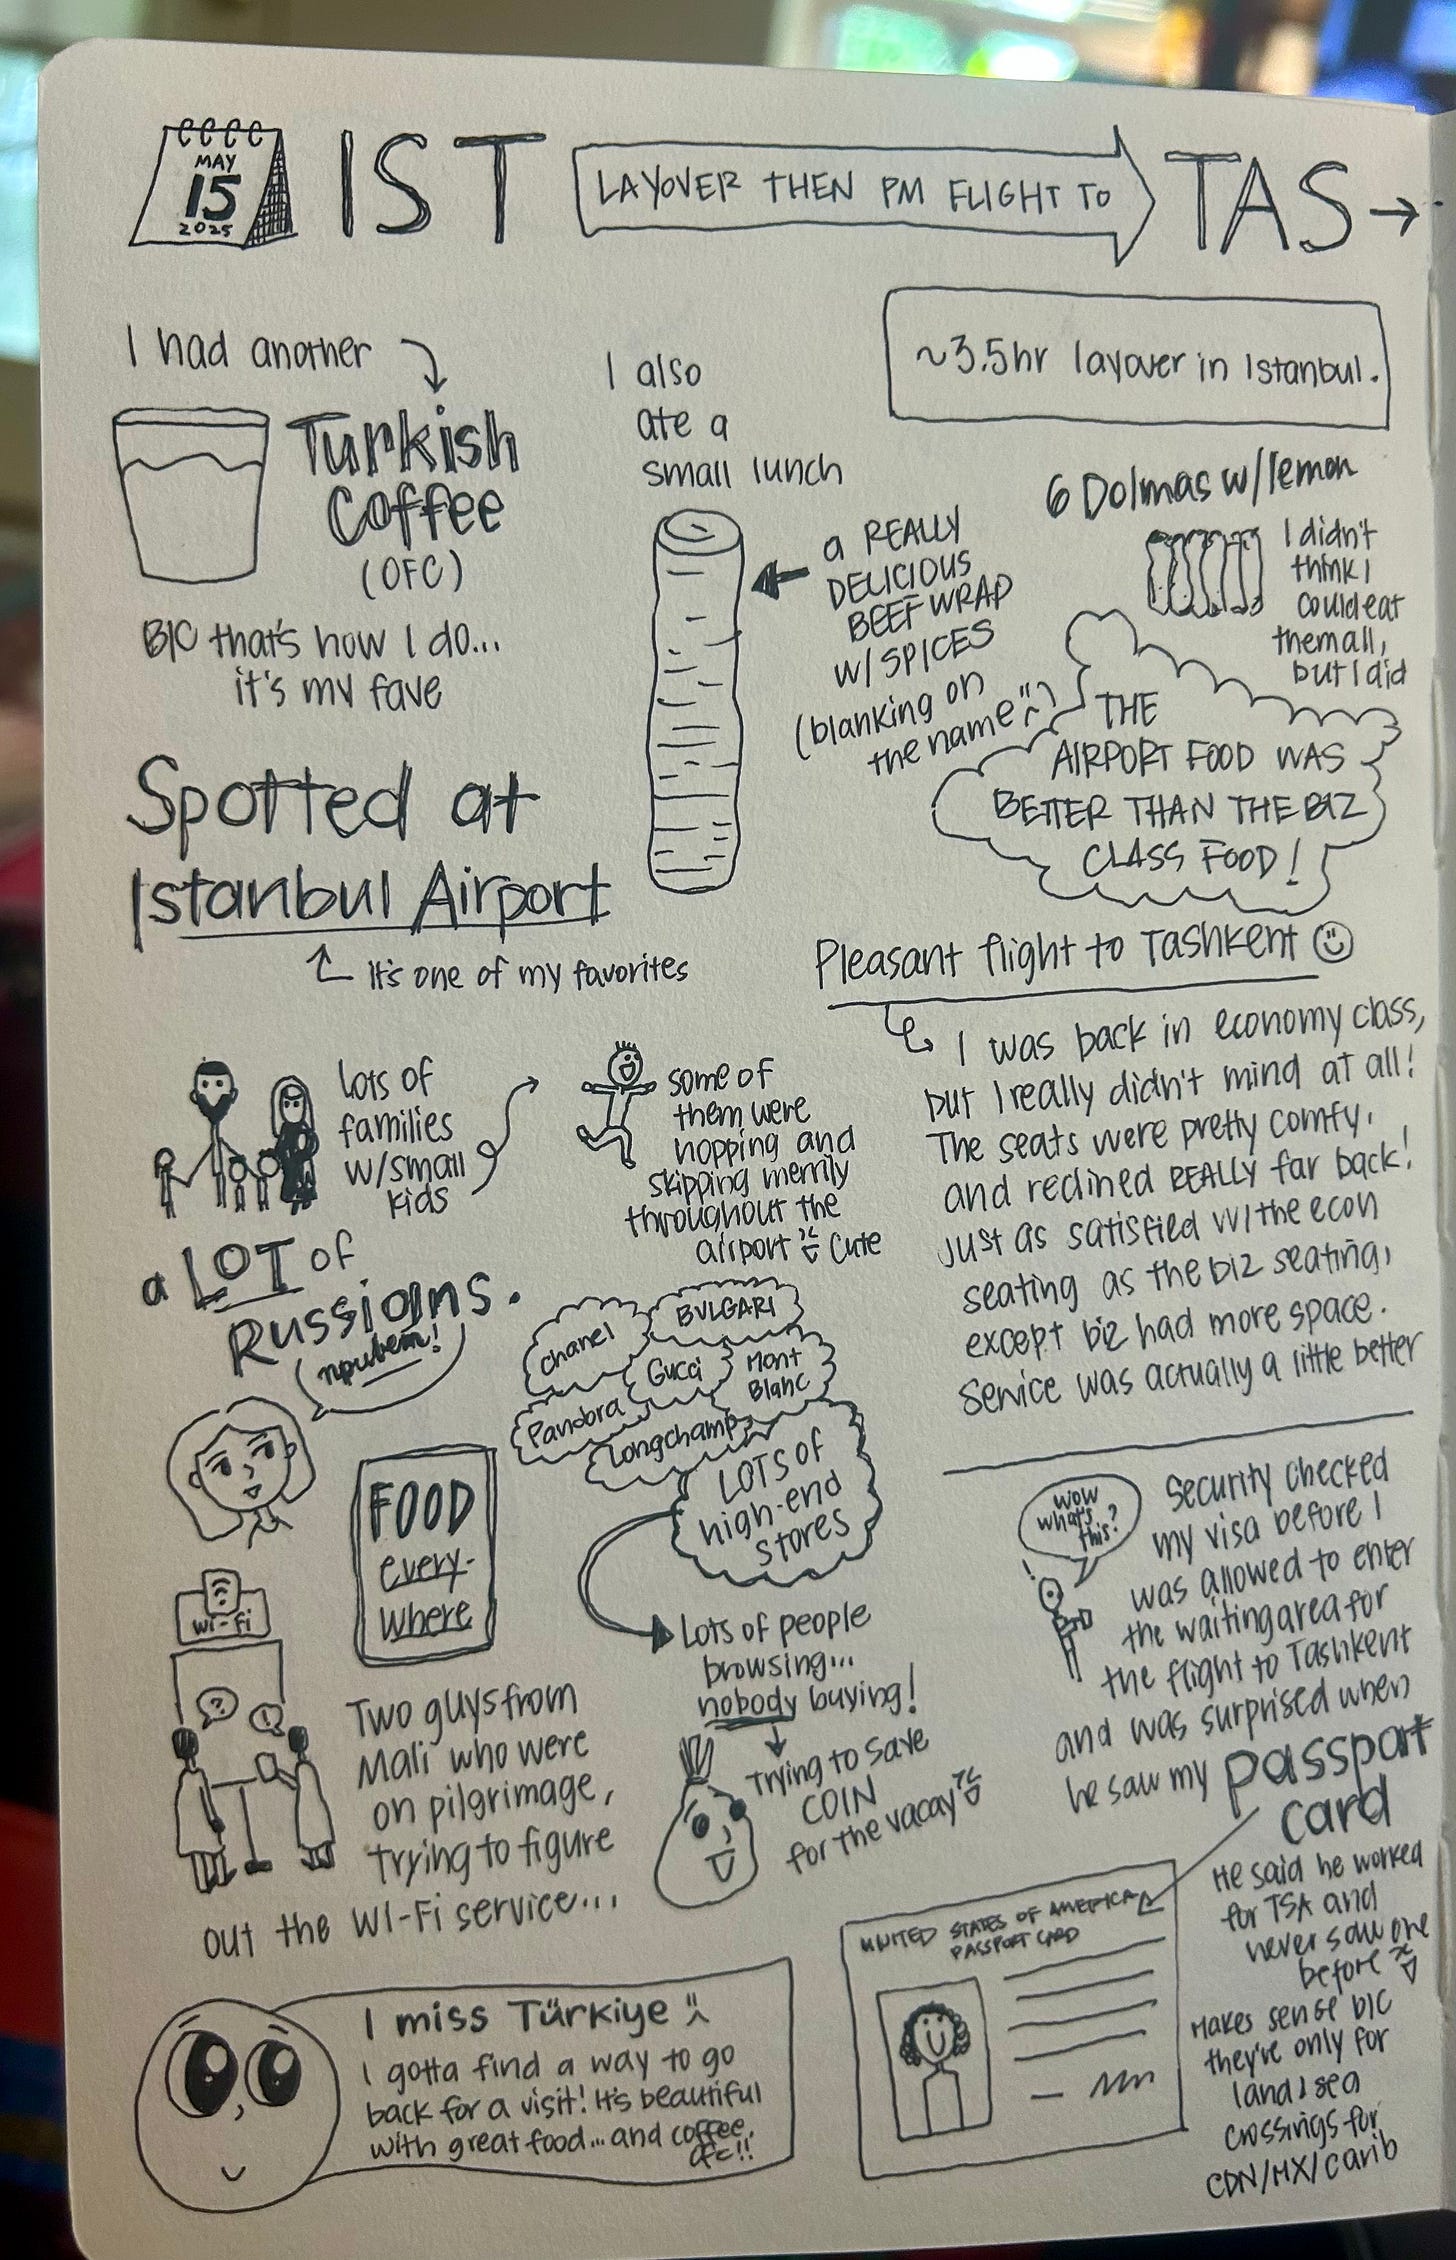 MAY
15
2025
IST
LAYOVER THEN PM FLIGHT TO
TAS →
~3.5hr layover in Istanbul.
I had another
Turkish
Coffee
(OFC)
B/C that's how I do...
it's my fave
I also
ate a
small lunch
a REALLY
DELICIOUS
BEEF WRAP
W/ SPICES
(blanking on
the name)
6 Dolmas w/lemon
I didn't
think I
could eat
them all,
but I did
THE
AIRPORT FOOD WAS
BETTER THAN THE BIZ
CLASS FOOD!
Spotted at
Istanbul Airport
It's one of my favorites
lots of
families
w/small
kids
some of
them were
hopping and
skipping merrily
throughout the
airport
Cute
a LOT of
Russians.
привет!
FOOD
every-
where
Chanel
BVLGARI
Gucci
Mont
Blanc
Pandora
Longchamp
LOTS OF
high-end
stores
Lots of people
browsing...
nobody buying!
trying to save
COIN
for the vacay
wi-fi
?
!
Two guys from
Mali who were
on pilgrimage,
trying to figure
out the WI-Fi service...
I miss Türkiye
I gotta find a way to go
back for a visit! It's beautiful
with great food... and coffee,
ofc!!
Pleasant flight to Tashkent
I was back in economy class,
but I really didn't mind at all!
The seats were pretty comfy,
and reclined REALLY far back!
Just as satisfied w/the econ
seating as the biz seating,
except biz had more space.
Service was actually a little better
wow
what's
this?
!
Security checked
my visa before I
was allowed to enter
the waiting area for
the flight to Tashkent
and was surprised when
he saw my passport
card
He said he worked
for TSA and
never saw one
before
Makes sense b/c
they're only for
land & sea
crossings for
CDN/MX/Carib
UNITED STATES OF AMERICA
PASSPORT CARD